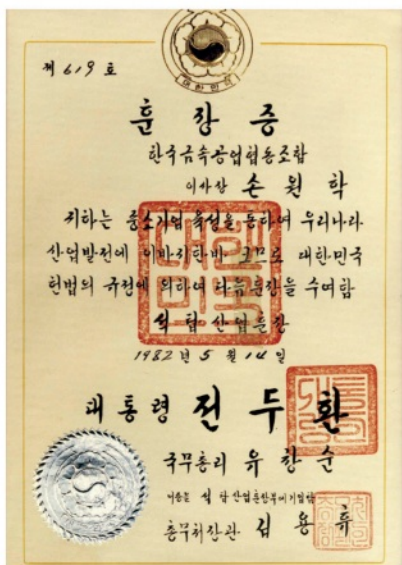 대한민국
제 619 호
훈장증
한국금속공업협동조합
이사장 손원학
귀하는 중소기업 육성을 통하여 우리나라
산업발전에 이바지한바 크므로 대한민국
헌법의 규정에 의하여 다음 훈장을 수여함
석탑산업훈장
1982년 5월 14일
대통령 전두환
국무총리 유창순
석탑산업훈장부에 기입함
총무처장관 김용휴